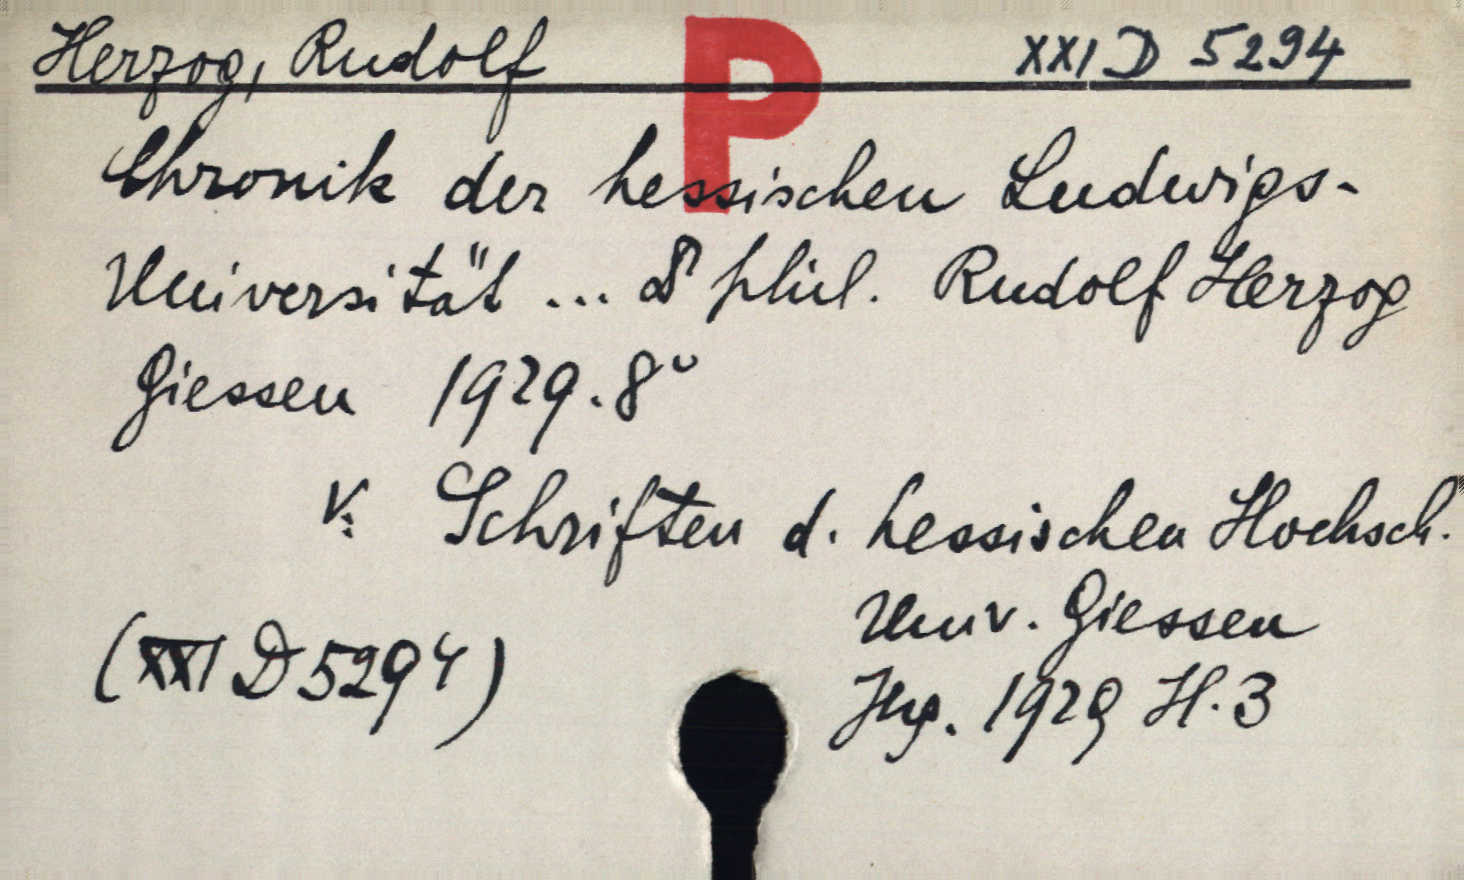 Herzog, Rudolf P XXI D 5294
Chronik der hessischen Ludwigs-
Universität ... Dr phil. Rudolf Herzog
Giessen 1929. 8°
v. Schriften d. hessischen Hochsch.
Univ. Giessen
(XXI D 5294)
Jhg. 1929 H. 3